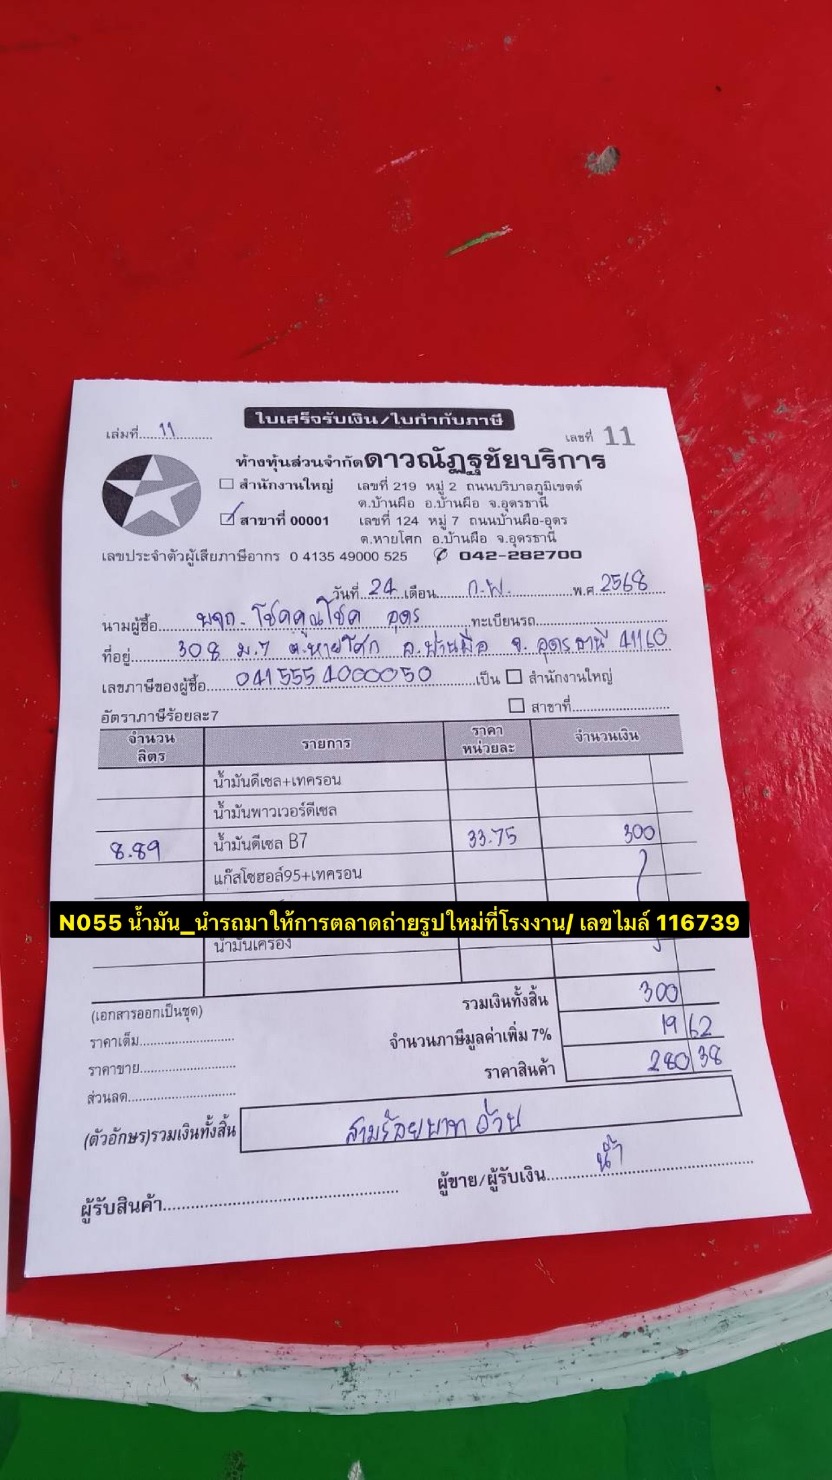 ใบเสร็จรับเงิน/ใบกำกับภาษี
เล่มที่ 11
เลขที่ 11
ห้างหุ้นส่วนจำกัดดาวณัฏฐชัยบริการ
สำนักงานใหญ่ เลขที่ 219 หมู่ 2 ถนนบริบาลภูมิเขตต์
ต.บ้านผือ อ.บ้านผือ จ.อุดรธานี
สาขาที่ 00001 เลขที่ 124 หมู่ 7 ถนนบ้านผือ-อุดร
ต.หายโศก อ.บ้านผือ จ.อุดรธานี
เลขประจำตัวผู้เสียภาษีอากร 0 4135 49000 525 042-282700
วันที่ 24 เดือน ก.พ. พ.ศ. 2568
นามผู้ซื้อ หจก. โชคคูณโชค อุดร ทะเบียนรถ
ที่อยู่ 308 ม.7 ต.หายโศก อ.บ้านผือ จ. อุดรธานี 41160
เลขภาษีของผู้ซื้อ 0415554000050 เป็น สำนักงานใหญ่
สาขาที่
อัตราภาษีร้อยละ7
จำนวนลิตร รายการ ราคาหน่วยละ จำนวนเงิน
น้ำมันดีเซล+เทครอน
น้ำมันพาวเวอร์ดีเซล
8.89 น้ำมันดีเซล B7 33.75 300
แก๊สโซฮอล์95+เทครอน
N055 น้ำมัน_นำรถมาให้การตลาดถ่ายรูปใหม่ที่โรงงาน/ เลขไมล์ 116739
น้ำมันเครื่อง
(เอกสารออกเป็นชุด) รวมเงินทั้งสิ้น 300
ราคาเต็ม จำนวนภาษีมูลค่าเพิ่ม 7% 19 62
ราคาขาย ราคาสินค้า 280 38
ส่วนลด
(ตัวอักษร)รวมเงินทั้งสิ้น สามร้อยบาทถ้วน
ผู้รับสินค้า ผู้ขาย/ผู้รับเงิน